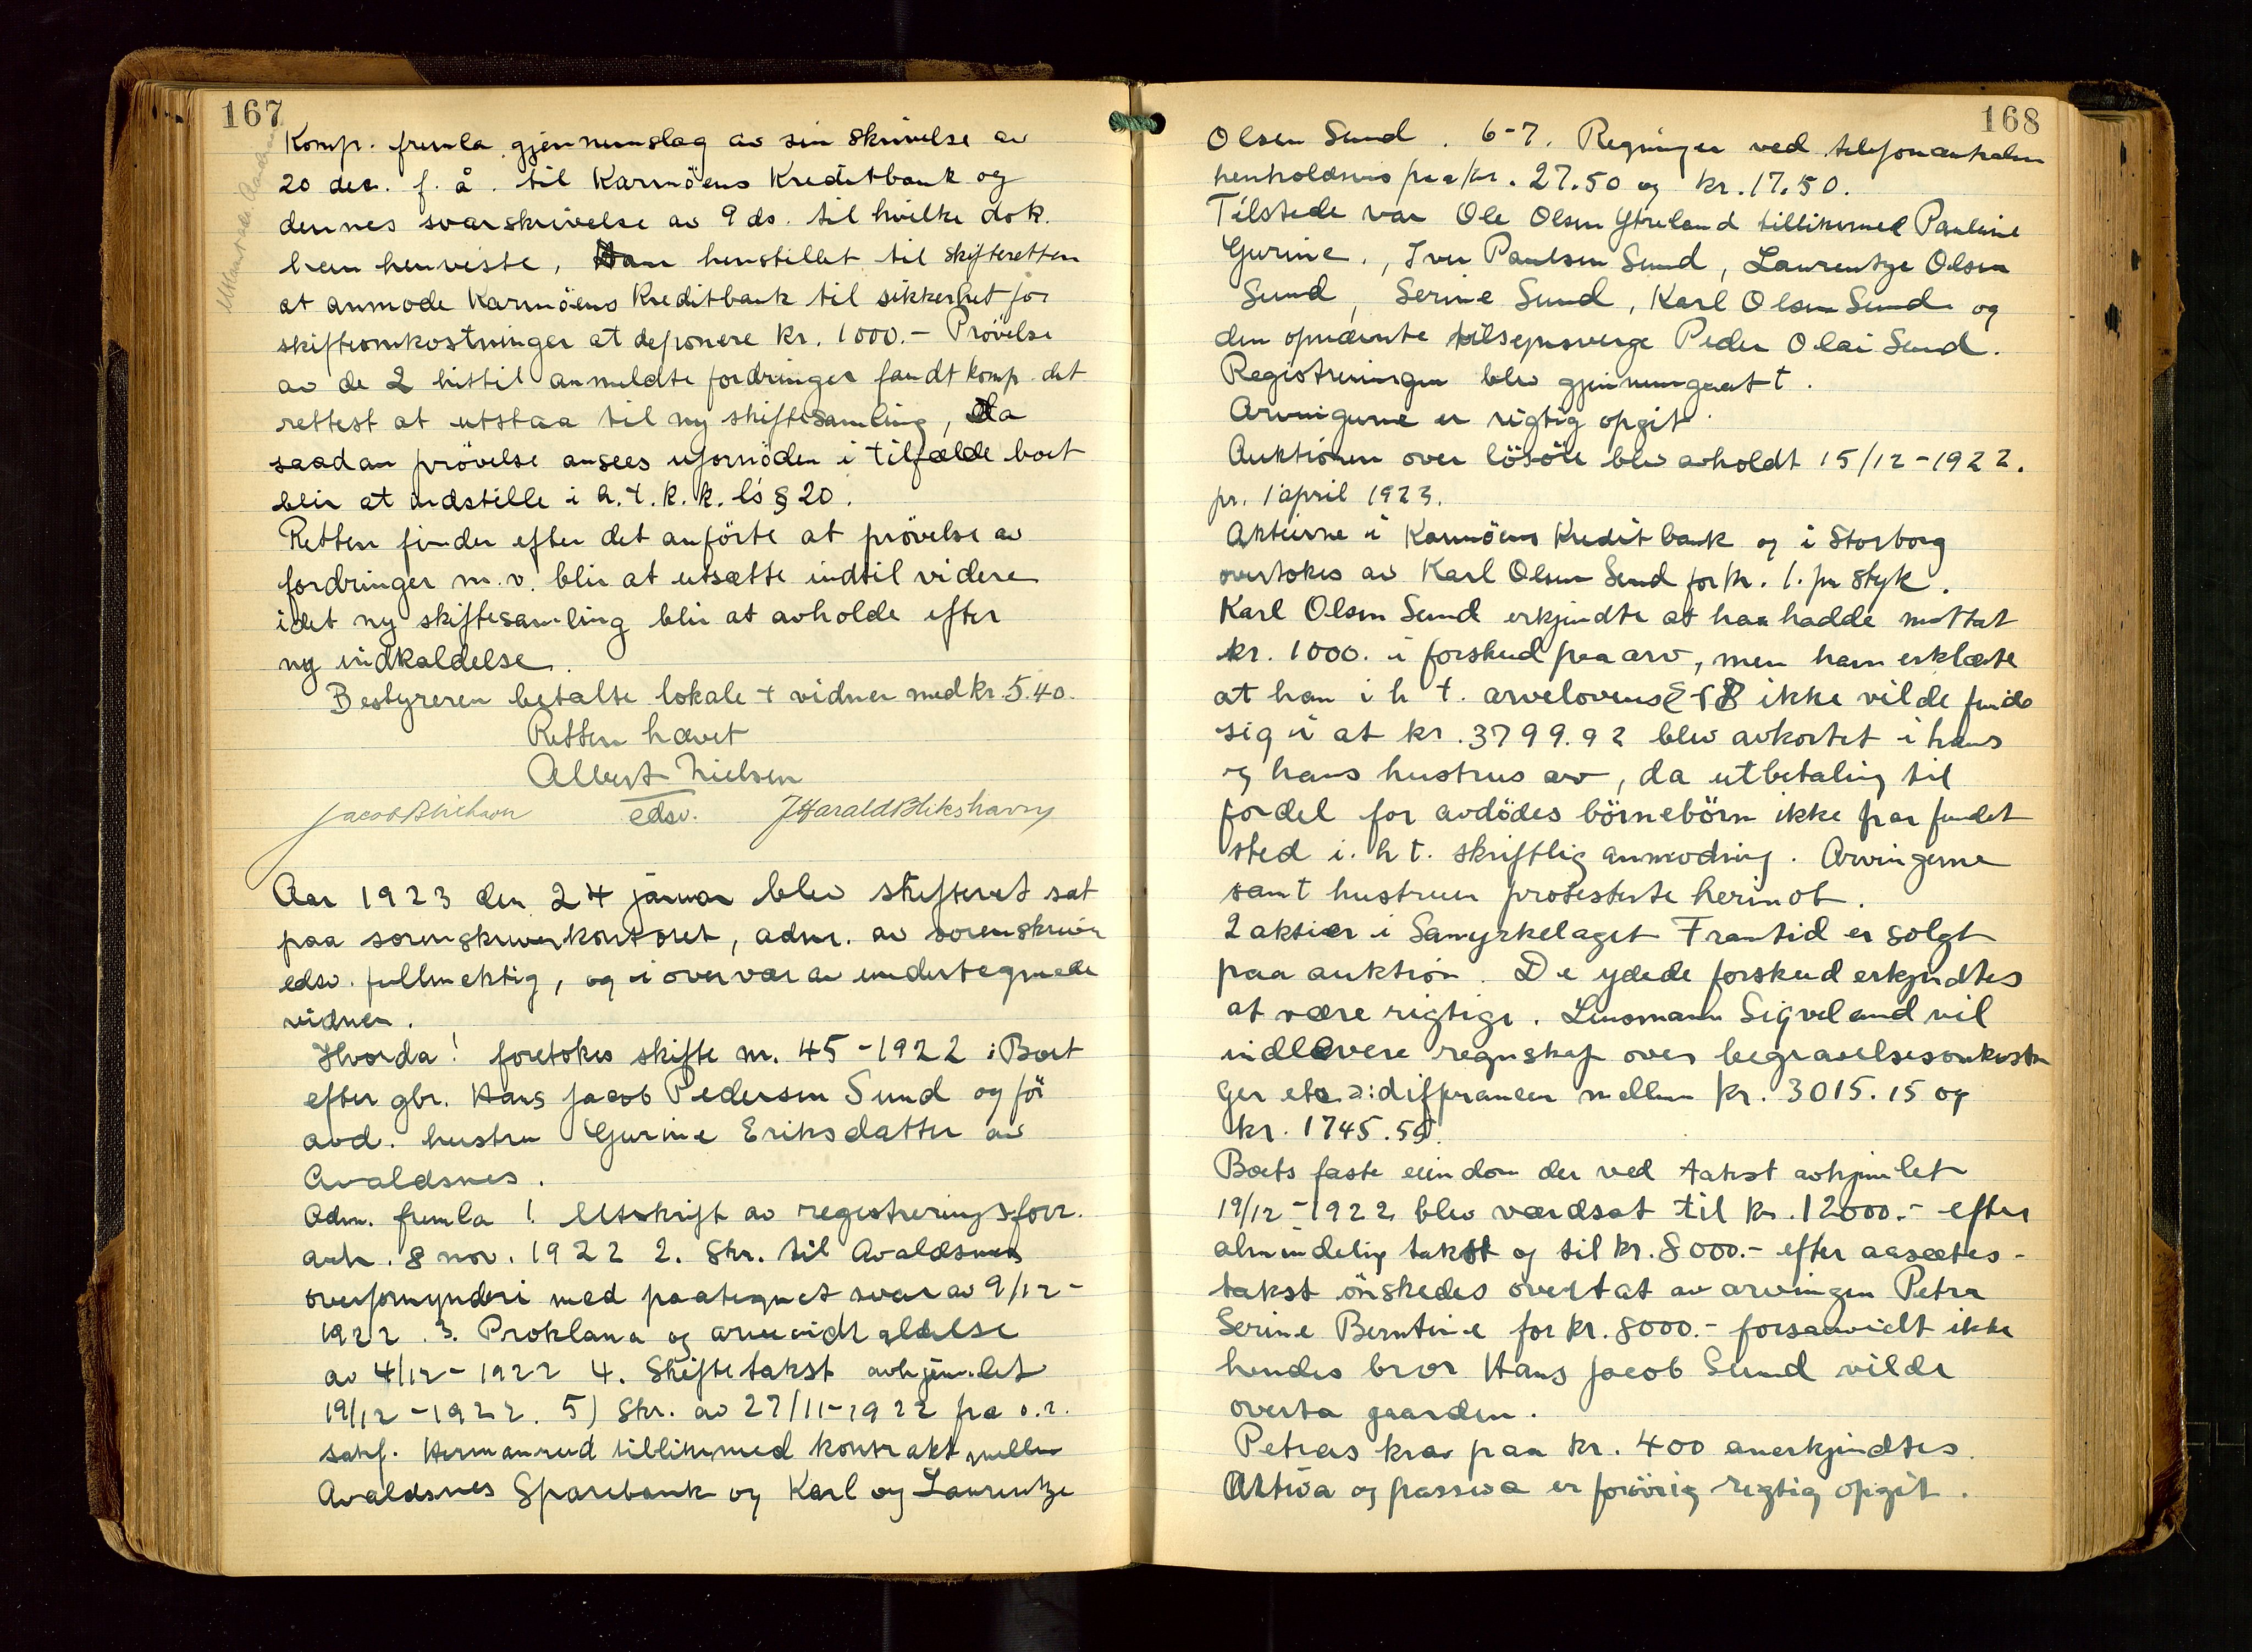 167
Komp. fremla gjennemslag av sin skrivelse av
20 des. f. å. til Karmöens Kreditbank og
dennes svarskrivelse av 9 ds. til hvilke dok.
han henviste, Han henstillet til skifteretten
at anmode Karmöens Kreditbank til sikkerhet for
skifteomkostninger at deponere kr. 1000.- Prövelse
av de 2 hittil anmeldte fordringer fandt komp. det
rettest at utstaa til ny skiftesamling, da
saadan prövelse ansees ufornöden i tilfælde boet
blir at indstille i h. t. k. k. l's § 20.
Retten finder efter det anförte at prövelse av
fordringer m.v. blir at utsætte indtil videre
idet ny skiftesamling blir at avholde efter
ny indkaldelse.
Bestyreren betalte lokale + vidner med kr. 5.40.
Retten hævet
Albert Nielsen
edsv.
Jacob Blikhavn J Harald Blikshavn
Aar 1923 den 24 januar blev skifteret sat
paa sorenskriverkontoret, adm. av sorenskriver
edsv. fullmektig, og i overvær av undertegnede
vidner.
Hvorda! foretokes skifte nr. 45-1922 i Boet
efter gbr. Hans Jacob Pedersen Sund og för
avd. hustru Gurine Eriksdatter av
Avaldsnes.
Adm. fremla 1. Utskrift av registreringsforr.
avh. 8 nov. 1922 2. Skr. til Avaldsnes
overformynderi med paategnet svar av 9/12-
1922. 3. Proklama og arveindkaldelse
av 4/12-1922 4. Skiftetakst avhjemlet
19/12-1922. 5) Skr. av 27/11-1922 fra o.r.
sakf. Hermanrud tillikemed kontrakt mellem
Avaldsnes Sparebank og Karl og Laurentze
168
Olsen Sund. 6-7. Regninger ved telefoncentralen
henholdsvis paa kr. 27.50 og kr. 17.50.
Tilstede var Ole Olsen Ytreland tillikemed Pauline
Gurine., Iver Paulsen Sund, Laurentze Olsen
Sund, Serine Sund, Karl Olsen Sund og
den opnævnte tilsynsverge Peder Olai Sund.
Registreringen blev gjennemgaatt.
Arvingerne er rigtig opgit.
Auktionen over lösöre blev avholdt 15/12-1922.
pr. 1 april 1923.
Aktierne i Karmöens Kreditbank og i Storborg
overtokes av Karl Olsen Sund for kr. 1. pr styk.
Karl Olsen Sund erkjendte at han hadde mottat
kr. 1000. i forskud paa arv, men han erklærte
at han i h t. arvelovens § ikke vilde finde
sig i at kr. 3799.92 blev avkortet i hans
og hans hustrus arv, da utbetaling til
fordel for avdödes börnebörn ikke har fundet
sted i. h t. skriftlig anmodning. Arvingerne
samt hustruen protesterte herimot.
2 aktier i Samyrkelaget Framtid er solgt
paa auktion. De ydede forskud erkjendtes
at være rigtige. Lensmann Sigveland vil
indlevere regnskap over begravelsesomkostnin
ger etc. ɔ: differancen mellem kr. 3015.15 og
kr. 1745.55.
Boets faste eiendom der ved takst avhjemlet
19/12-1922 blev værdsat til kr. 12000.- efter
almindelig takst og til kr. 8000.- efter aasætes-
takst önskedes overtat av arvingen Petra
Serine Berntine for kr. 8000.- forsaavidt ikke
hendes bror Hans Jacob Sund vilde
overta gaarden.
Petras krav paa kr. 400 anerkjendtes.
Aktiva og passiva er forövrig rigtig opgit.